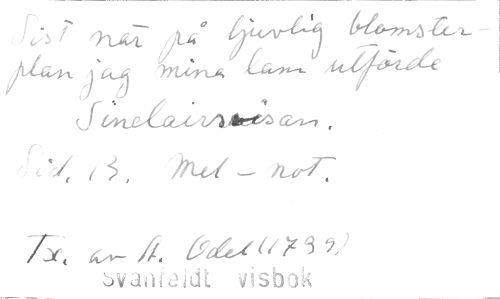 Sist när på ljuvlig blomster-
plan jag mina lam utförde
Sinclairsvisan.
Sid. 13. Mel-not.
Tx. av A. Odel (1739)
Svanfeldt visbok